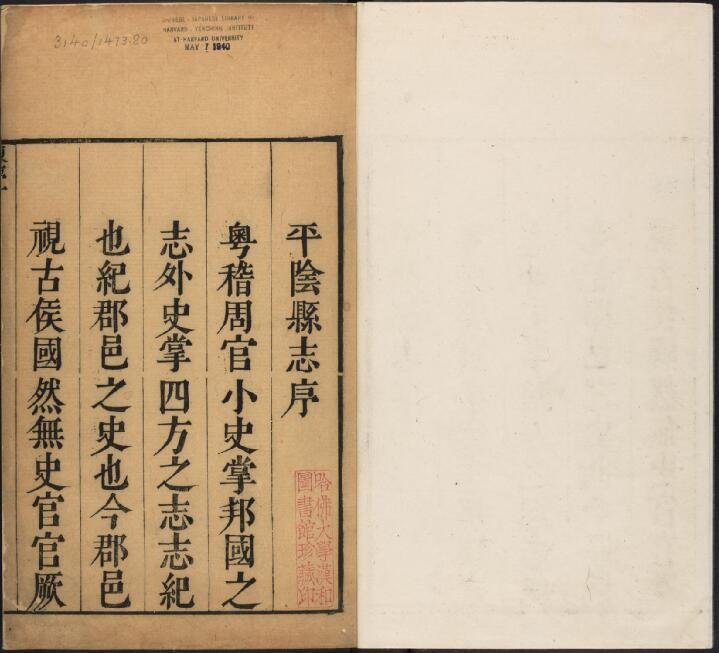 3140/1473.80
CHINESE-JAPANESE LIBRARY OF
HARVARD-YENCHING INSTITUTE
AT HARVARD UNIVERSITY
MAY 7 1940
平陰縣志序
粵稽周官小史掌邦國之
志外史掌四方之志志紀
也紀郡邑之史也今郡邑
視古侯國然無史官官厥
哈佛大學漢和
圖書館珍藏印